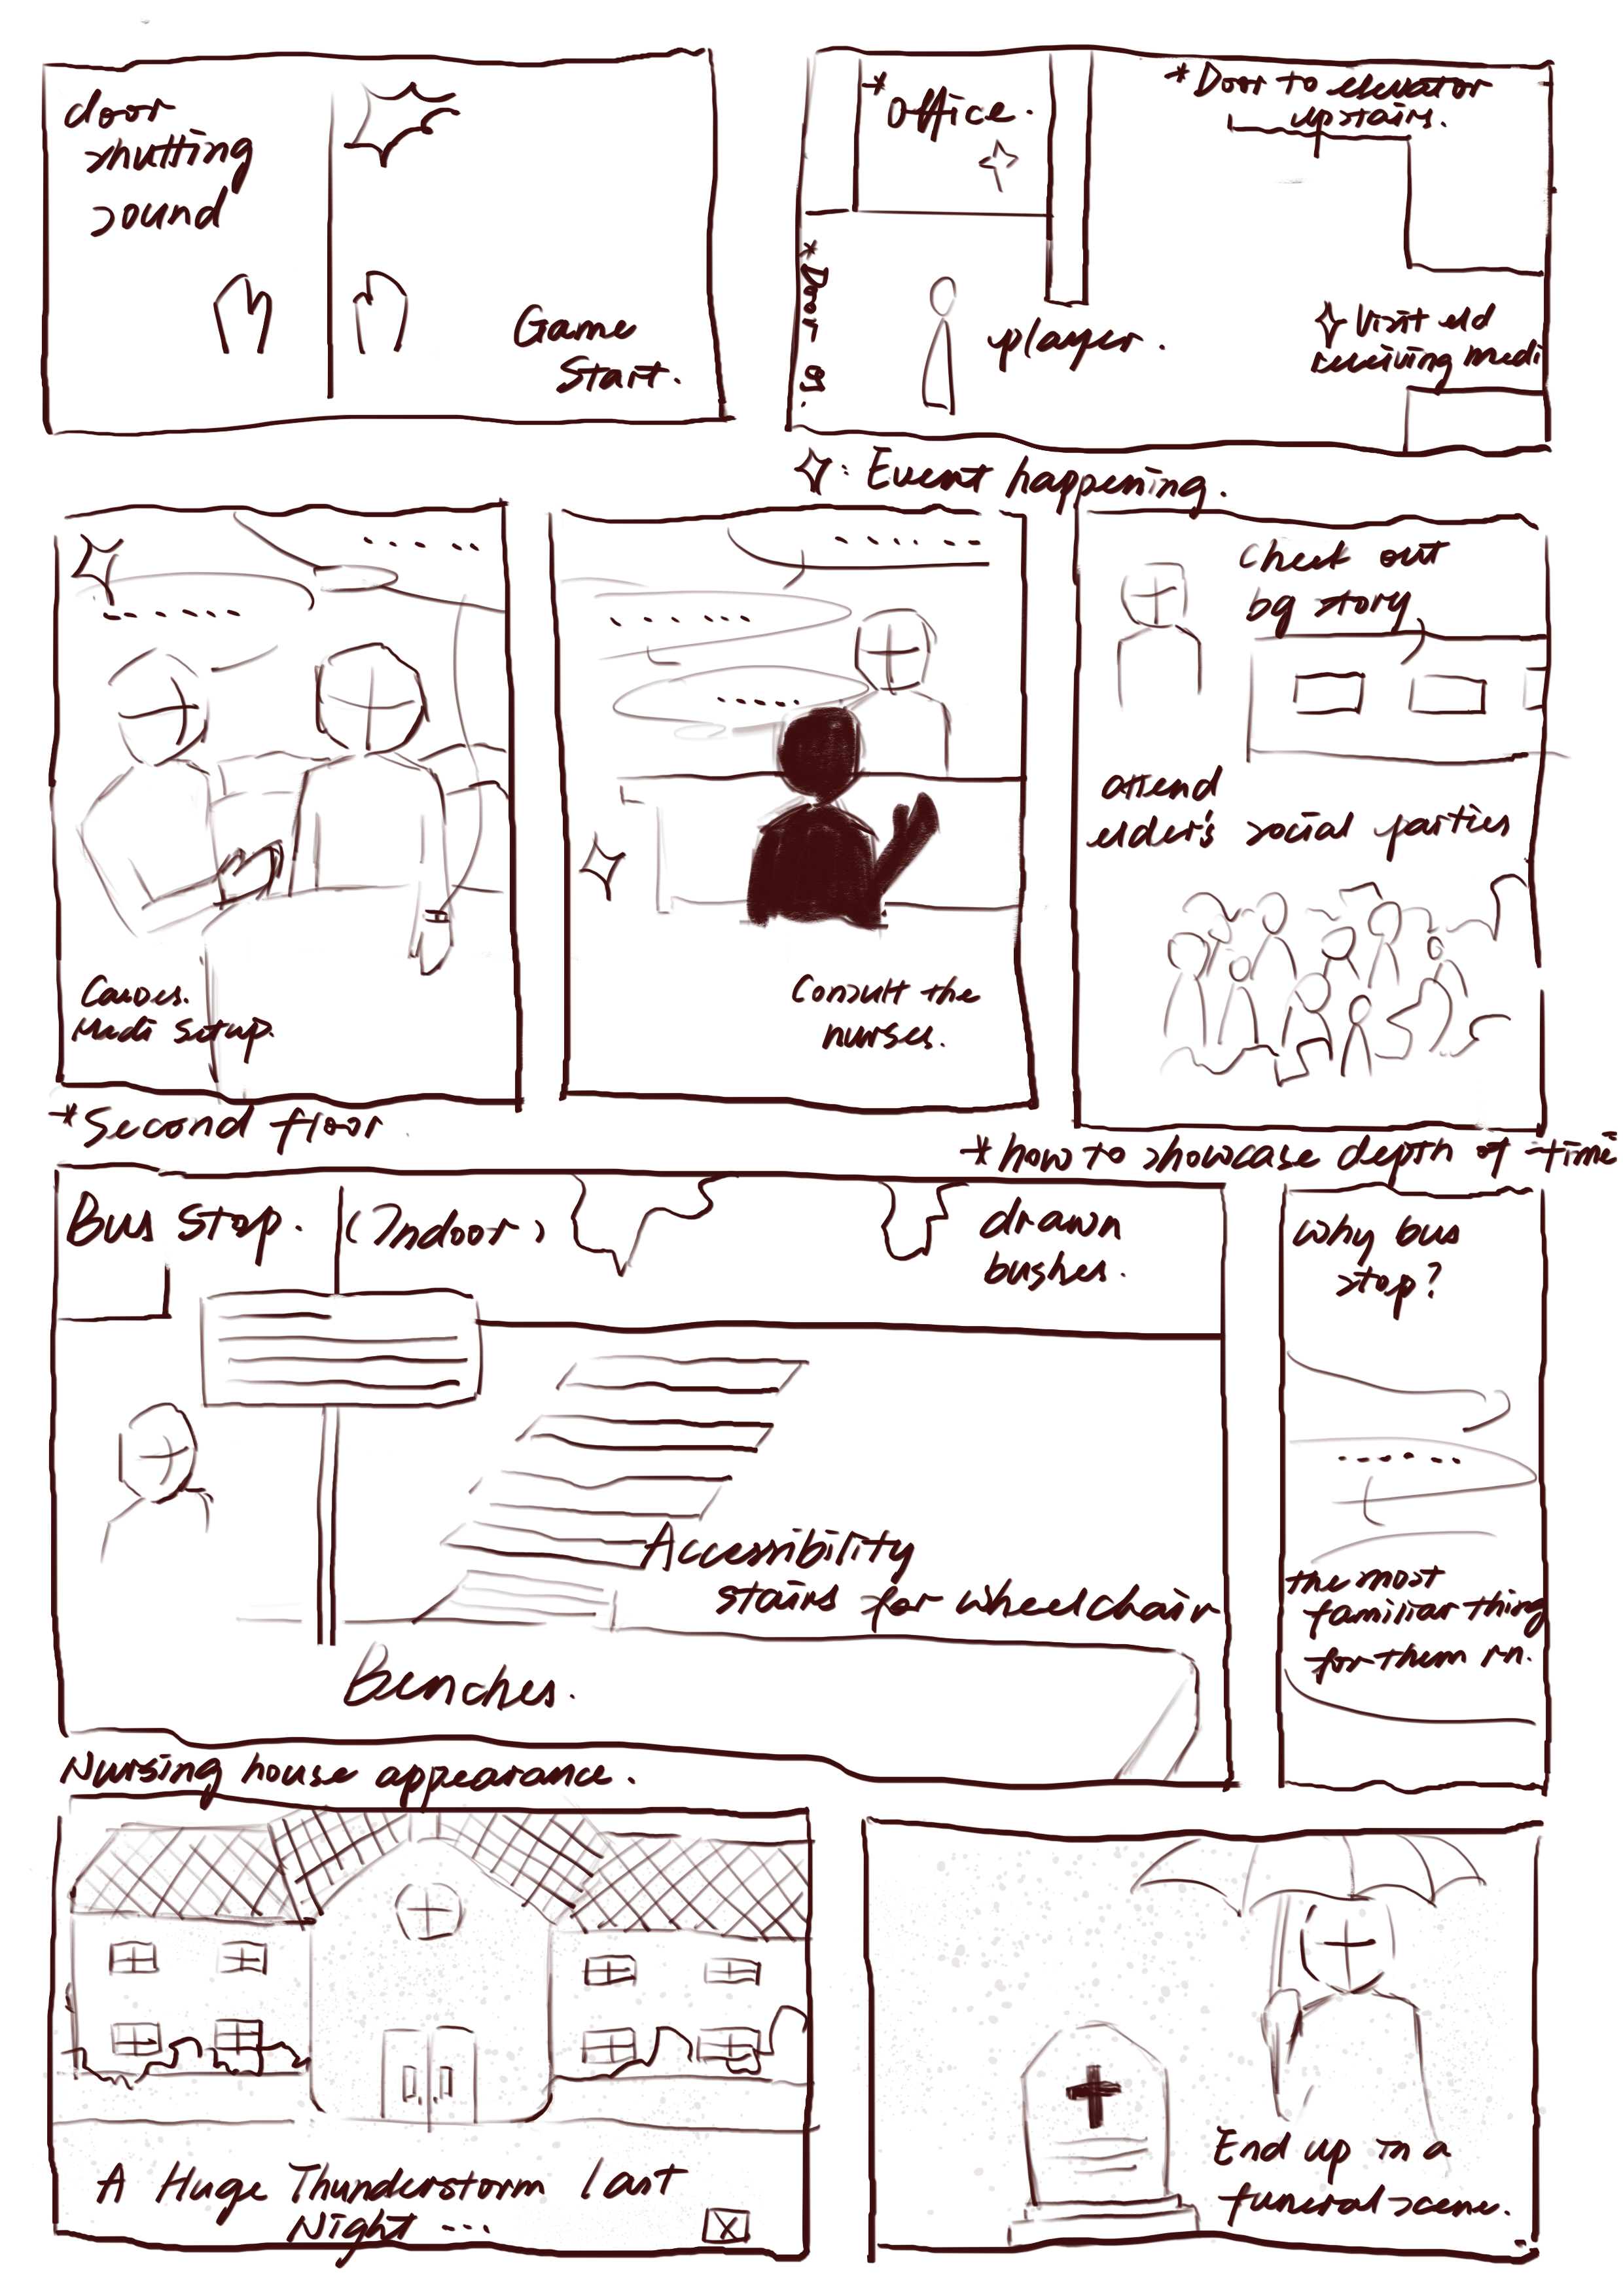 door
shutting
sound
Game
Start.
*Office.
*Door to elevator
upstairs.
*Door
player.
Visit eld
receiving medi
: Event happening.
Medi Setup.
Consult the
nurses.
Check out
bg story
attend
elder's social parties
*Second floor
*how to showcase depth of time
Bus Stop. (Indoor)
drawn
bushes.
Accessibility
stairs for wheelchair
Benches.
why bus
stop?
the most
familiar thing
for them rn.
Nursing house appearance.
A Huge Thunderstorm last
Night ...
X
End up in a
funeral scene.